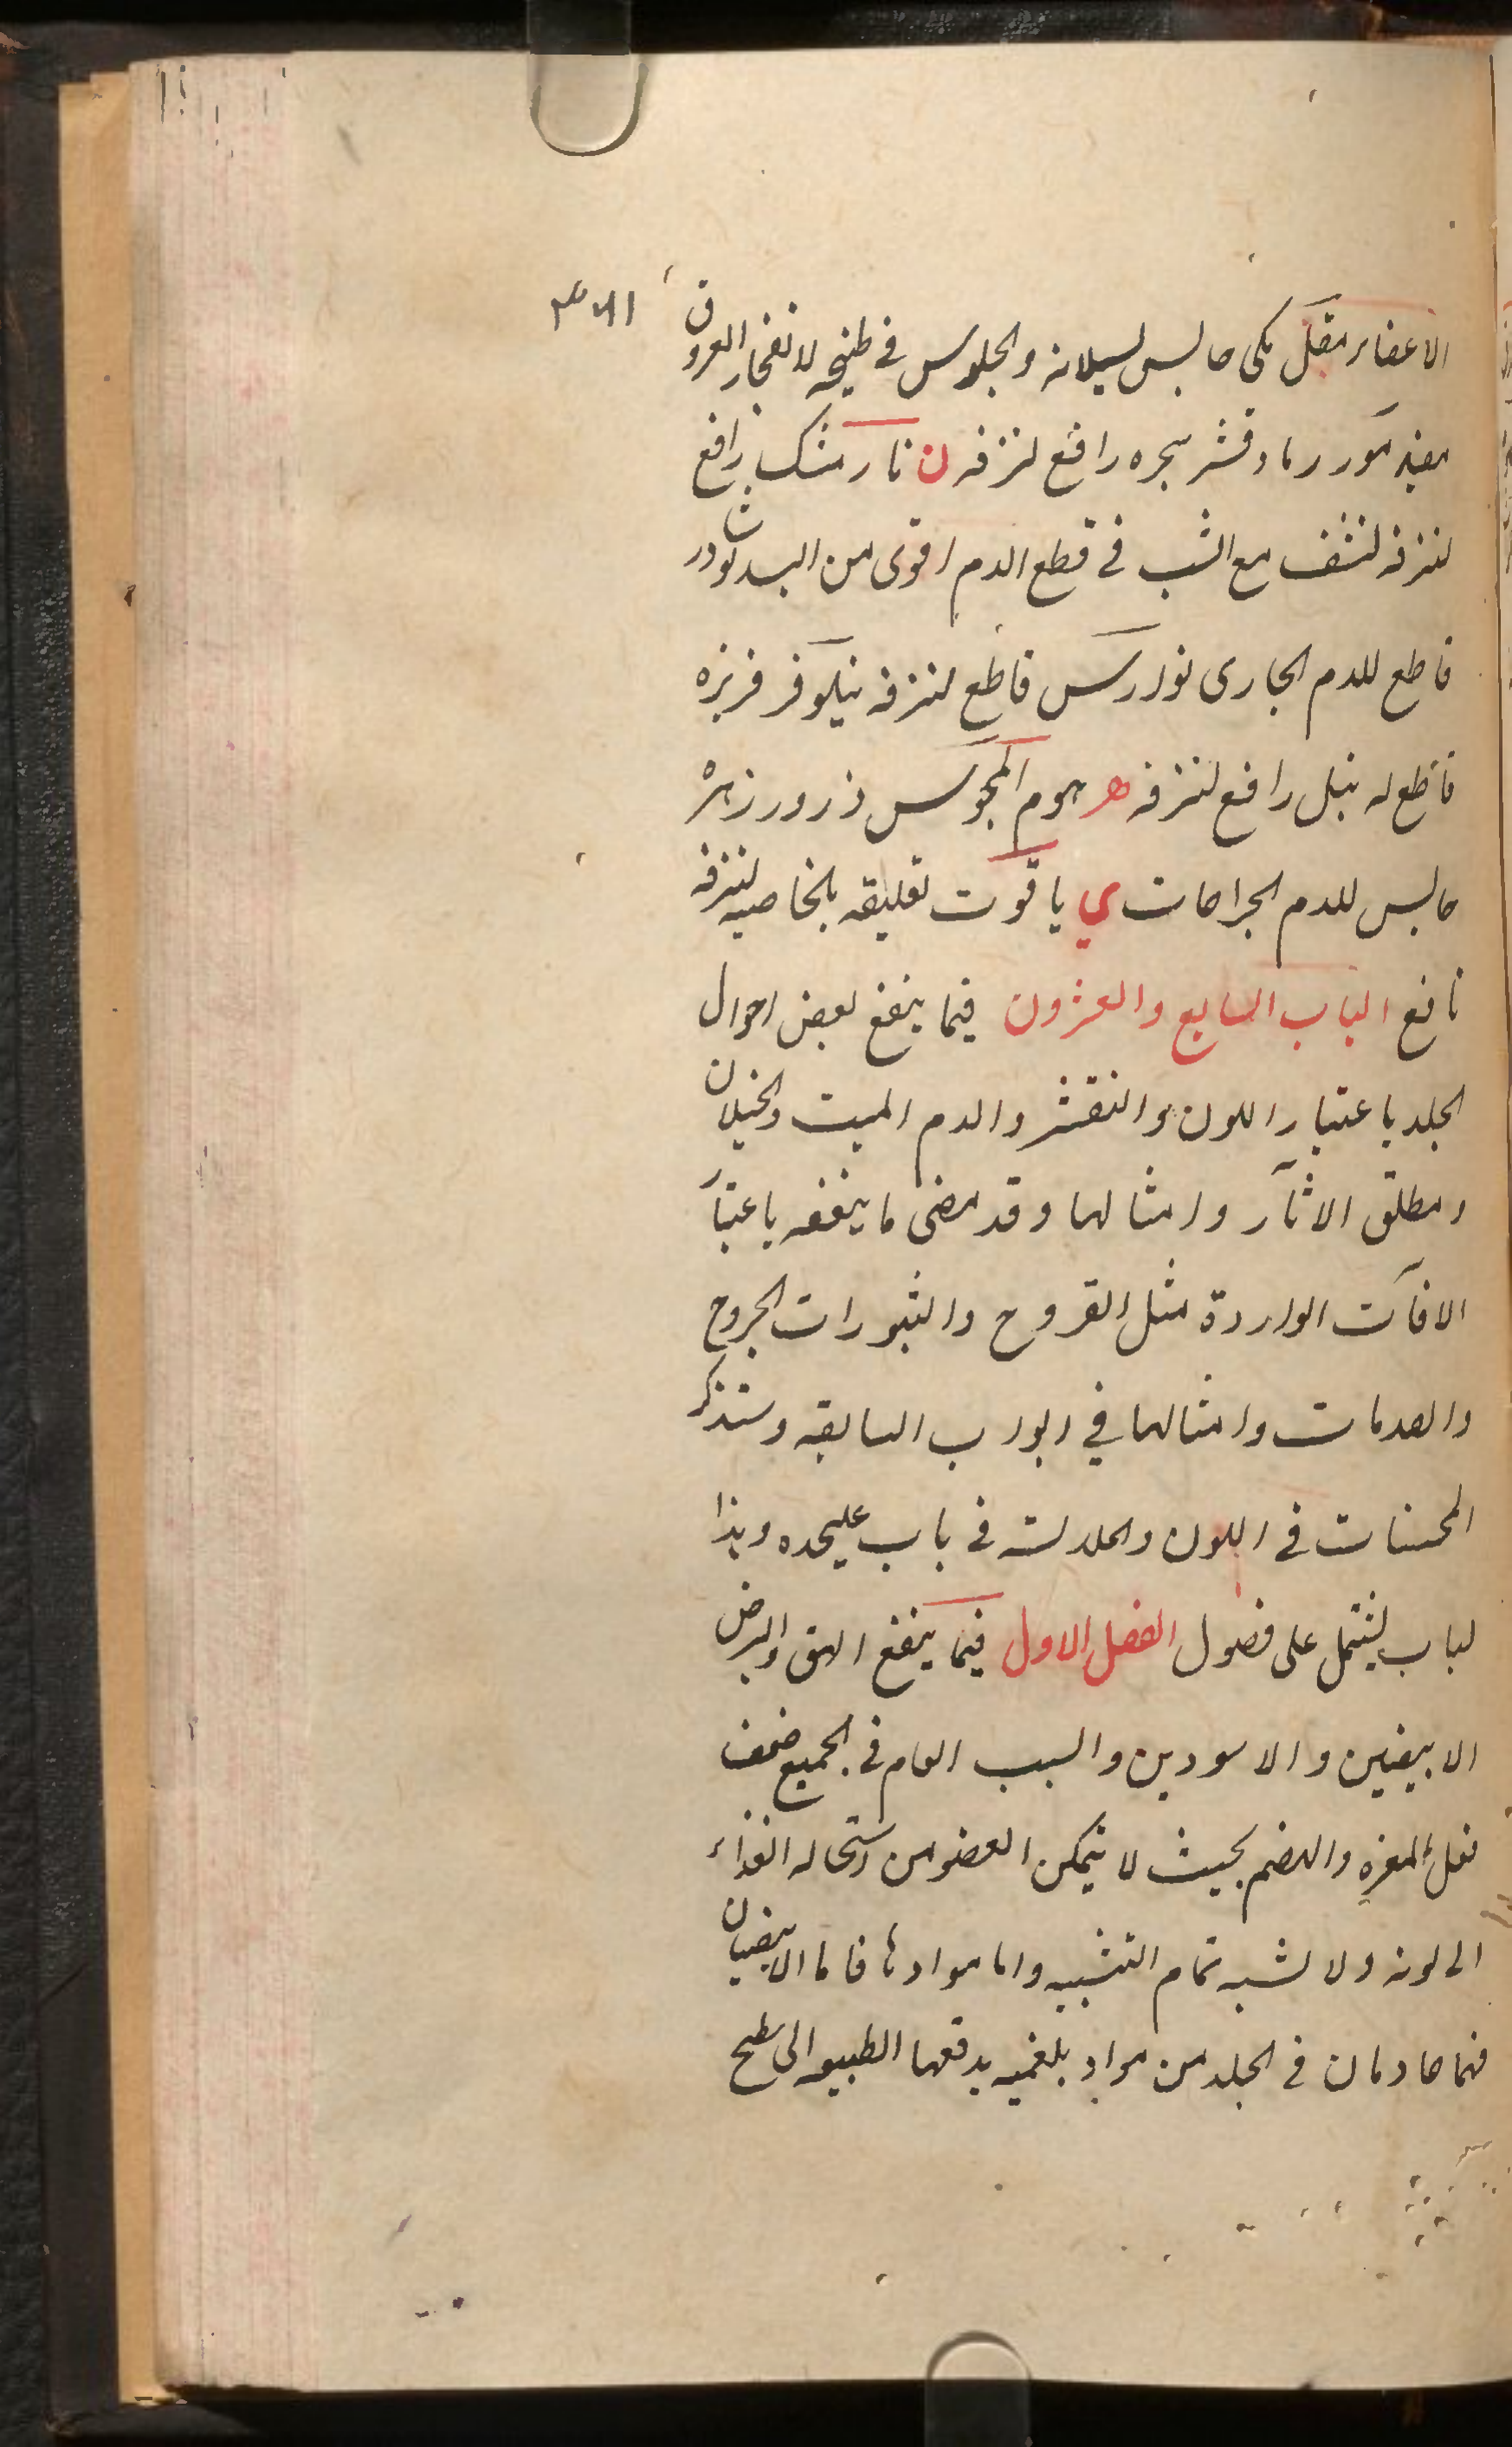 الاعضاء مقل مكى حابس لسيلانه والجلوس فى طبيخه لانفجار العروق
مفيد مور رماد قشر شجره رافع لنزفه ن نارمشك رافع
لنزفه لنشف مع الشب فى قطع الدم اقوى من البسد نوشادر
قاطع للدم الجارى نوارس قاطع لنزفه نيلوفر فريزه
قاطع له نيل رافع لنزفه ه هوم المجوس ذرور زهره
حابس للدم الجراحات ي ياقوت تعليقه بالخاصيه لنزفه
نافع الباب السابع والعشرون فيما ينفع بعض احوال
الجلد باعتبار اللون والتقشر والدم الميت والخيلان
ومطلق الاثار وامثالها وقد مضى ما ينفعه باعتبار
الافات الواردة مثل القروح والبثورات الجروح
والصدمات وامثالها في ابواب السابقه وستذكر
المحسنات فى اللون والجلد لسه فى باب عليحده وهذا
لباب يشتمل على فصول الفصل الاول فيما ينفع البهق والبرص
الابيضين والاسودين والسبب العام فى الجميع ضعف
فعل المغيره والهضم بحيث لا يتمكن العضو من استحاله الغذاء
الى لونه ولا لشبه تمام التشبيه واما موادها فاما الابيضان
فهما حادثان فى الجلد من مواد بلغميه يدفعها الطبيعه الى سطح